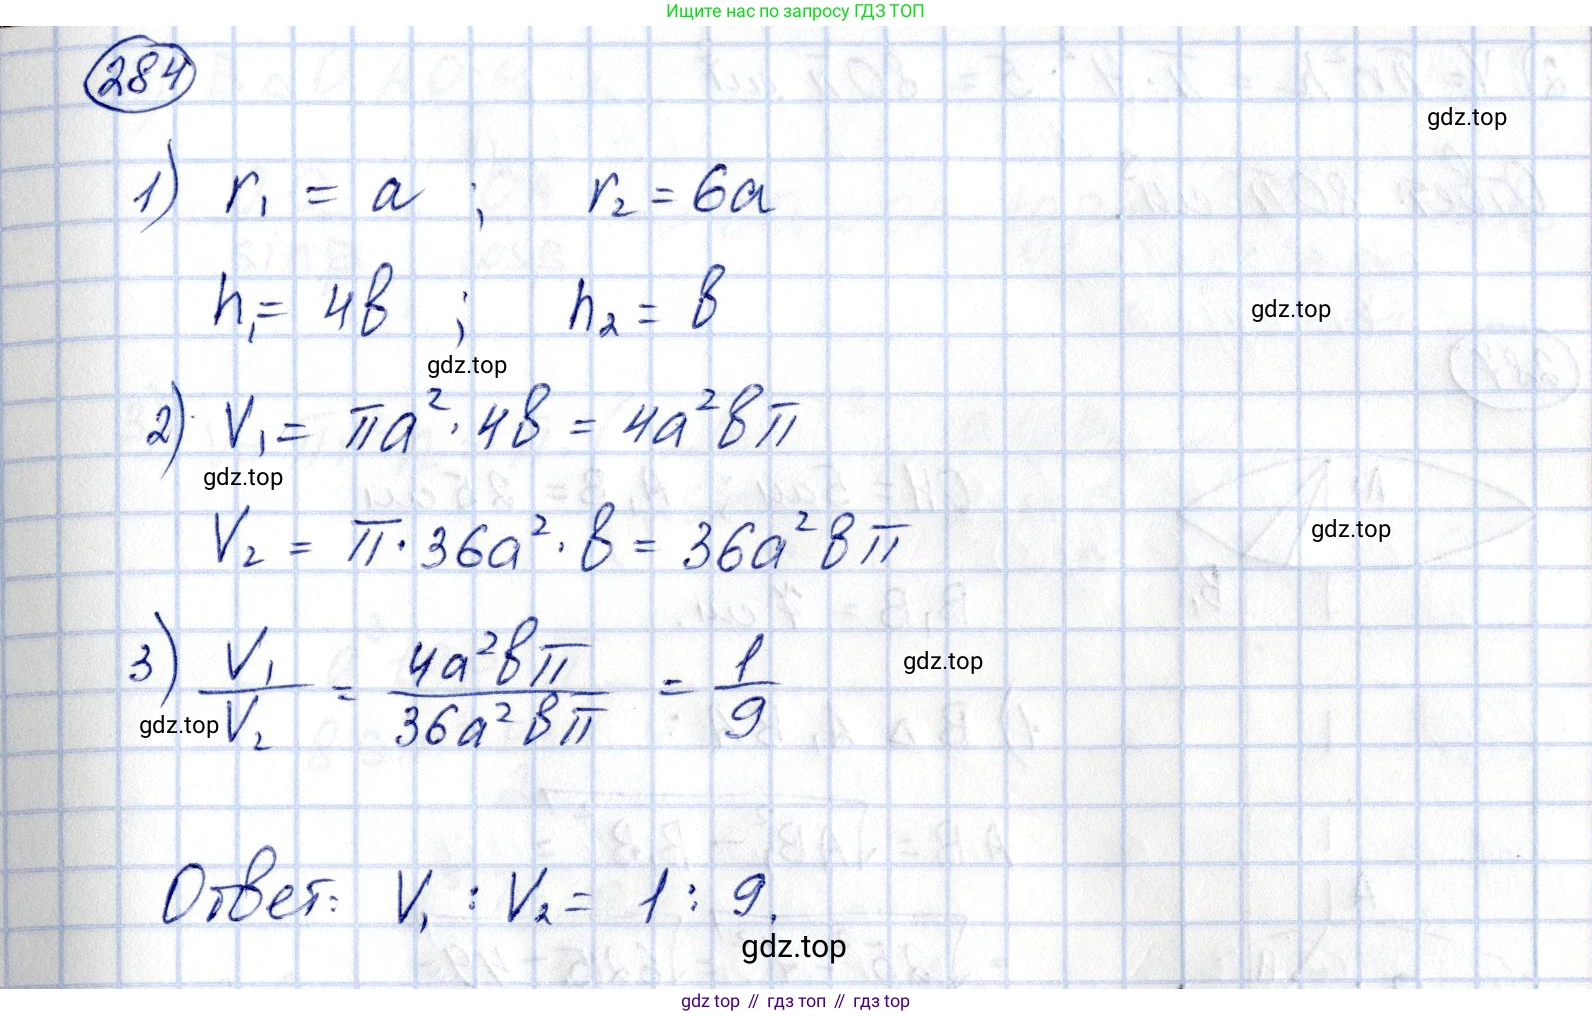 Ищите нас по запросу ГДЗ ТОП
284
gdz.top
1) r₁ = a ; r₂ = 6a
h₁ = 4b ; h₂ = b
gdz.top
gdz.top
2) V₁ = πa² · 4b = 4a²bπ
gdz.top
V₂ = π · 36a² · b = 36a²bπ
gdz.top
3) V₁/V₂ = 4a²bπ/36a²bπ = 1/9
gdz.top
gdz.top
Ответ: V₁ : V₂ = 1 : 9.
gdz.top
gdz top // гдз топ // гдз top